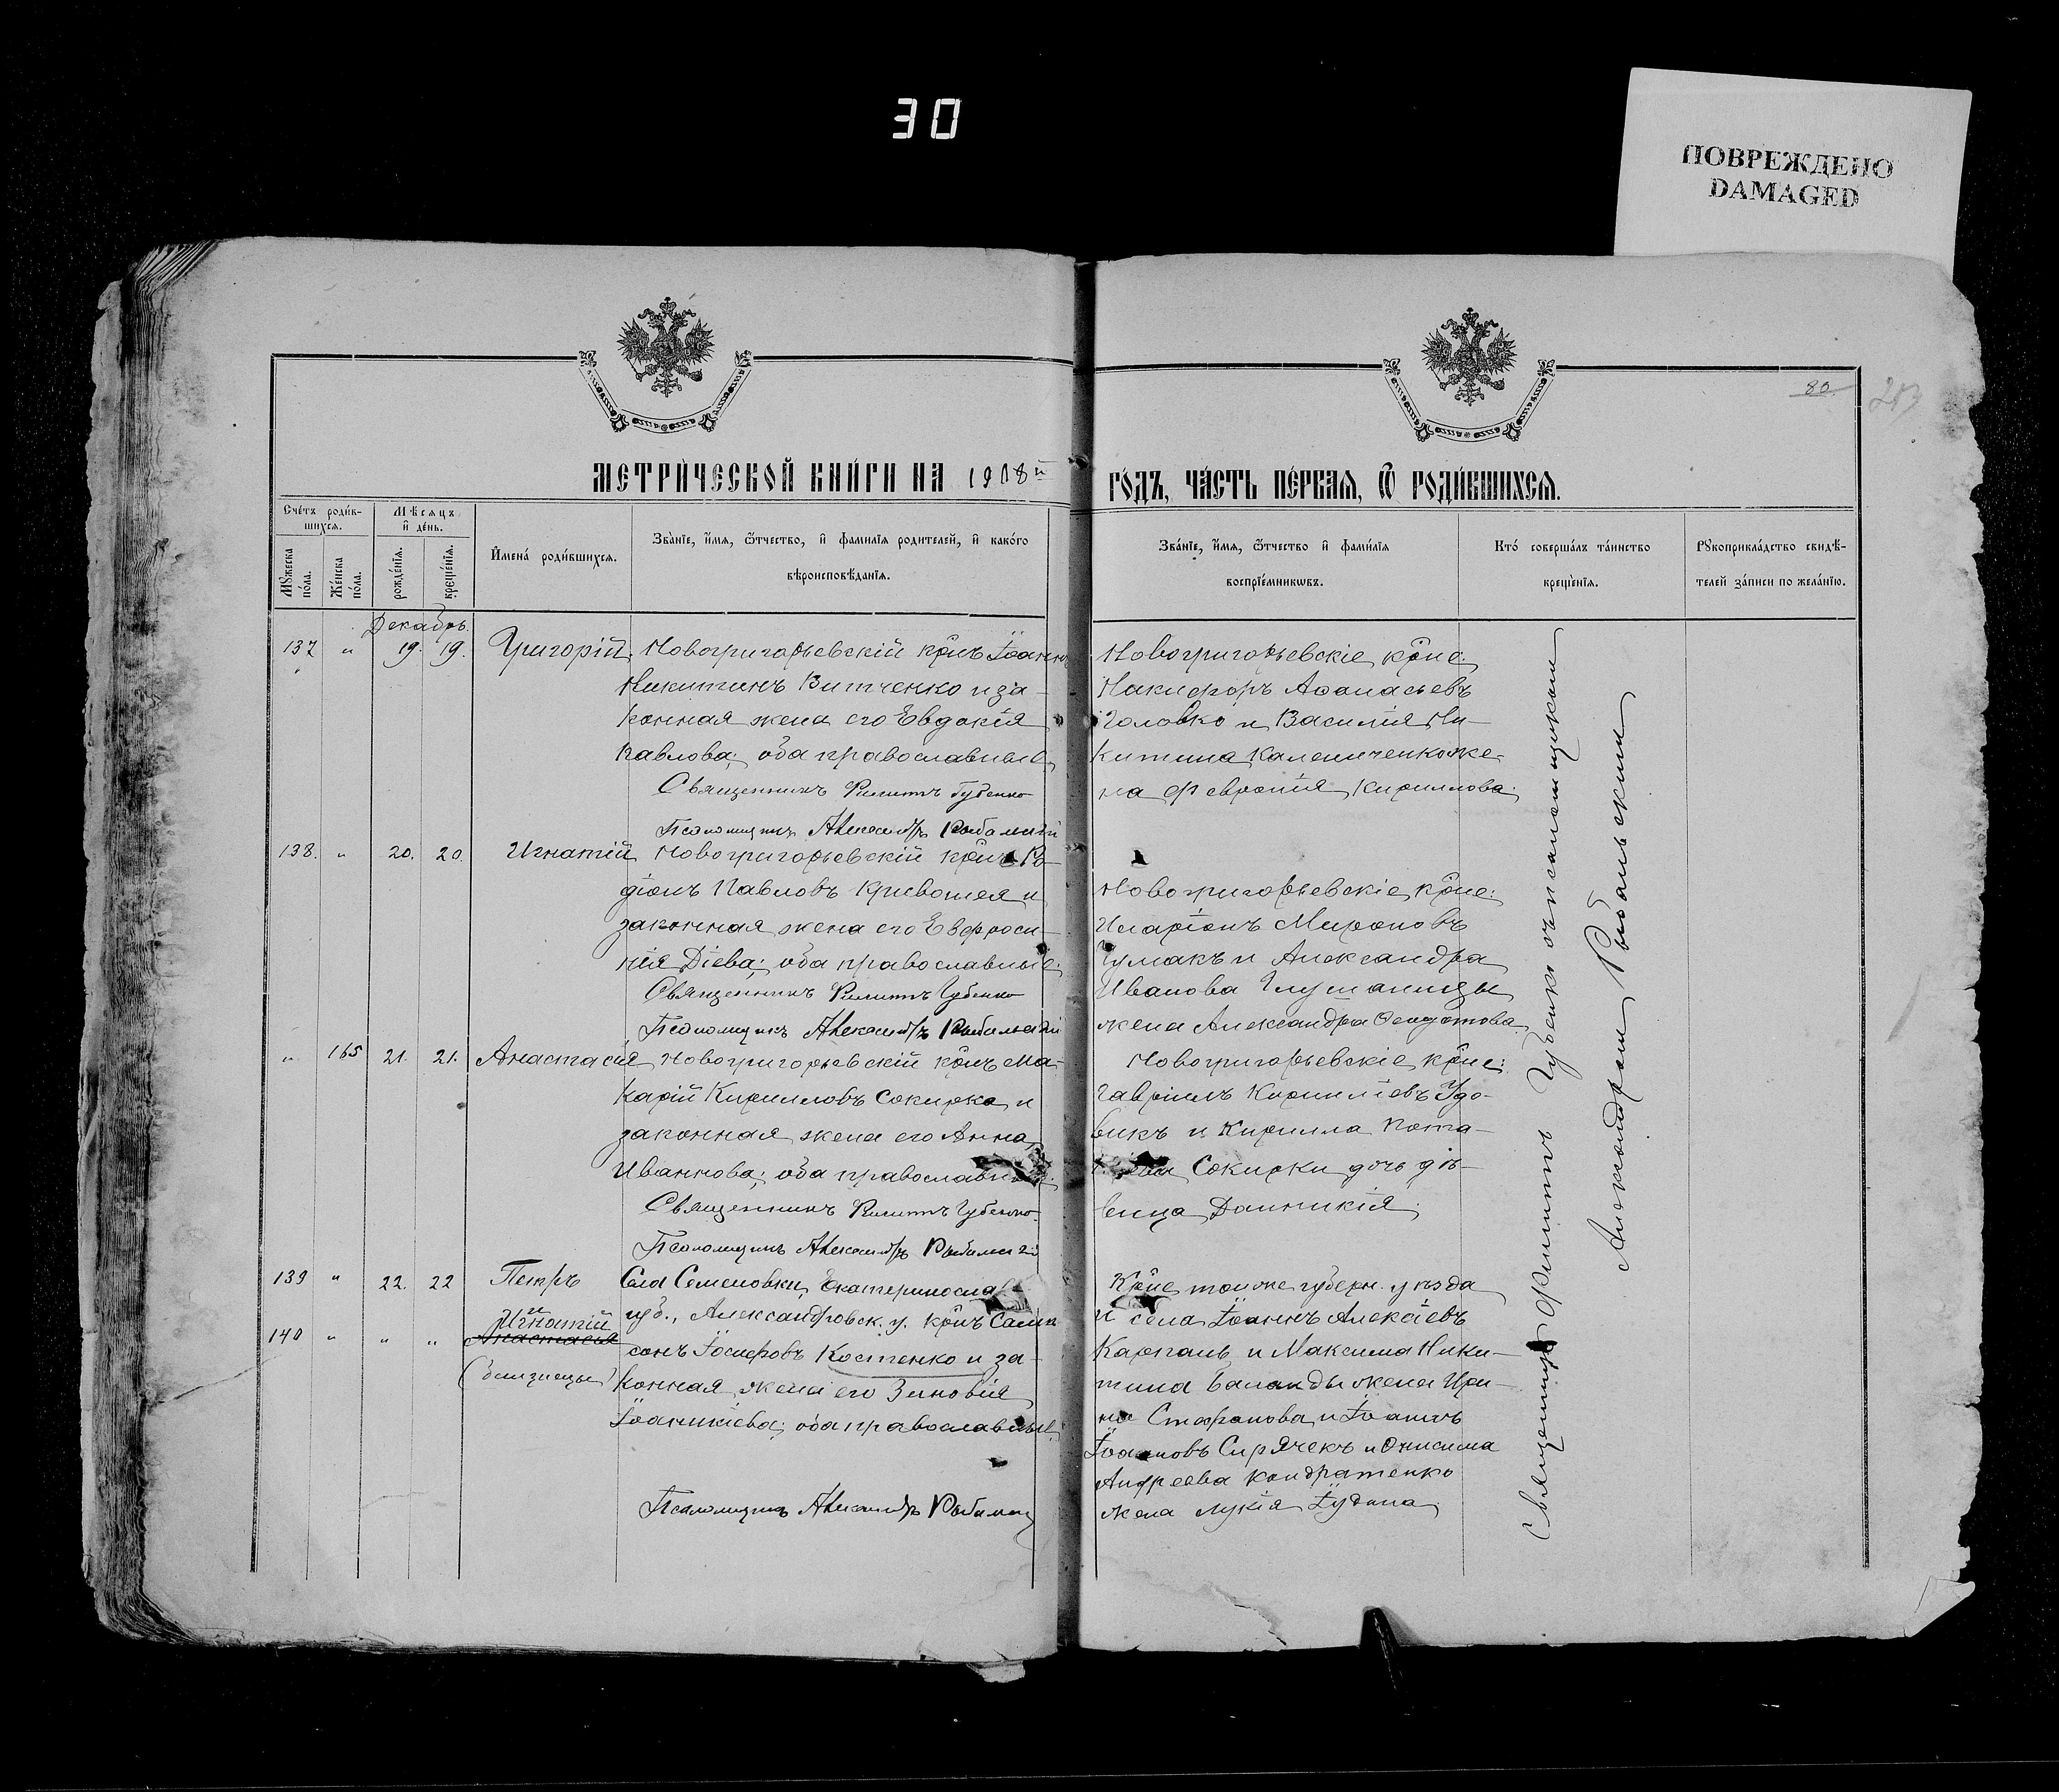 30
ПОВРЕЖДЕНО
DAMAGED
80
МЕТРИ́ЧЕСКОЙ КНИ́ГИ НА 1908й
ГО́ДЪ, ЧА́СТЬ ПЕ́РВАЯ, Ѿ РОДИ́ВШИХСЯ.
Счéтъ роди́в-
шихся.
Мѣ́сяцъ
и̂ де́нь.
Мꙋ́жеска
по́ла.
Же́нска
по́ла.
рожде́нїя.
креще́нїя.
И̂мена́ роди́вшихся.
Зва́нїе, и́мя, ѻ҆́тчество, и̂ фамилїя родителей, и̂ како́го
вѣроисповѣ́данїя.
Зва́нїе, и́мя, ѻ҆́тчество и̂ фами́лїя
воспрїе́мникѡвъ.
Кто́ соверша́лъ та́инство
креще́нїя.
Рꙋкоприкла́дство свидѣ́-
телей за́писи по жела́нїю.
Декабрь.
137 " 19. 19. Григорій Новогригорьевскій крнъ Іоаннъ
Никитинъ Витченко и за-
конная жена его Евдокія
Павлова; оба православные.
Священникъ Филиппъ Губенко
Псаломщикъ Александръ Рыбальскій
Новогригорьевскіе крне:
Никифоръ Аѳанасьевъ
Головко и Василія Ни-
китина Калениченко же-
на Февронія Кириллова.
138. " 20. 20. Игнатій Новогригорьевскій крнъ Ро-
діонъ Павловъ Кривошея и
законная жена его Евфроси-
нія Діева; оба православные.
Священникъ Филиппъ Губенко
Псаломщикъ Александръ Рыбальскій
Новогригорьевскіе крне:
Иларіонъ Мироновъ
Чумакъ и Александра
Иванова
жена Александра Ѳеодотова.
" 165 21. 21. Анастасія Новогригорьевскій крнъ Ма-
карій Кирилловъ Сокирка и
законная жена его Анна
Иваннова; оба православные.
Священникъ Филиппъ Губенко.
Псаломщикъ Александръ Рыбальскій
Новогригорьевскіе крне:
Гавріилъ Кирилловъ Удо-
викъ и Кирилла Пота-
Сокирки дочь дѣ-
вица Домникія.
139 " 22. 22 Петръ Села Семеновки, Екатеринослав.
и
140 " " " Игнатій Анастасія
(близнецы)
губ., Александровск. у. крнъ Самп
сонъ Іосифовъ Костенко и за-
конная жена его Зиновія
Іоаникіева; оба православные.
Псаломщикъ Александръ Рыбальскій
Крне той же губерн. уѣзда
и села Іоаннъ Алексіевъ
Карпань и Максима Ники-
тина Баланды жена Ири-
на Стефанова и Іоаннъ
Іоанновъ Сирячекъ и Онисима
Андреева Кондратенко
жена Лукія Іудина.
Священникъ Филиппъ Губенко съ псаломщикомъ
Александромъ Рыбальскимъ